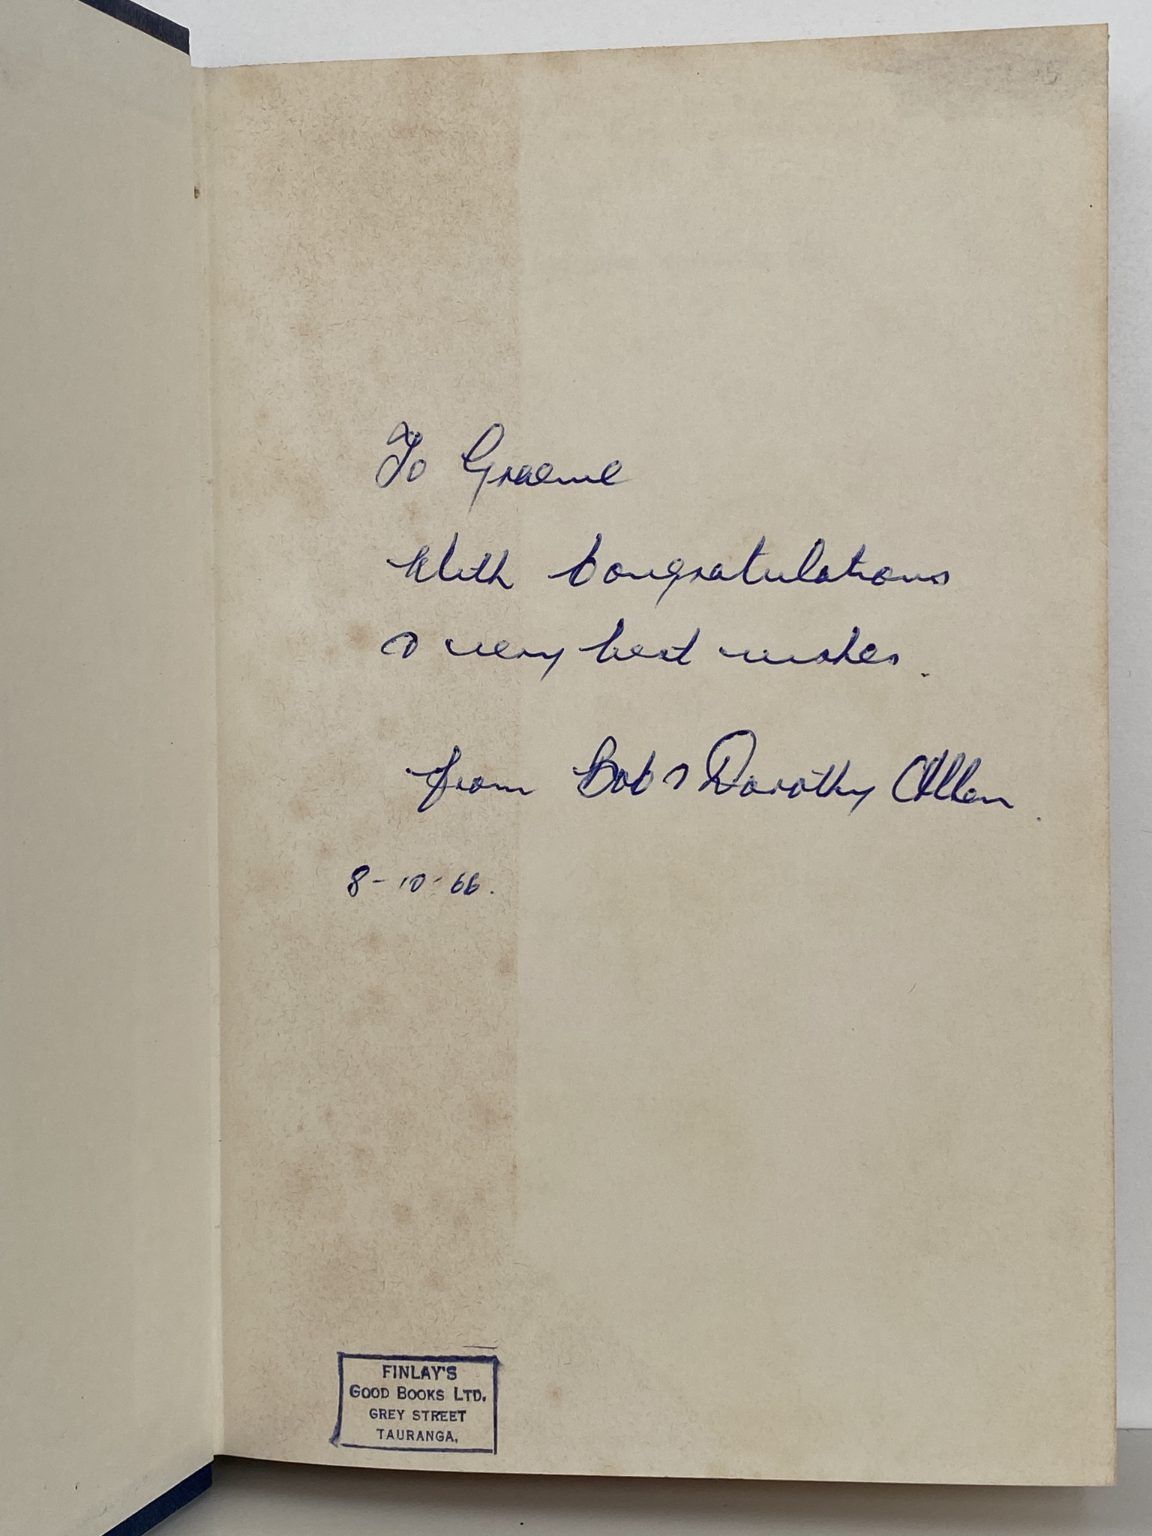 To Graeme
With Congratulations
& very best wishes.
from Bob & Dorothy Allen.
8-10-66.
FINLAY'S
GOOD BOOKS LTD.
GREY STREET
TAURANGA.